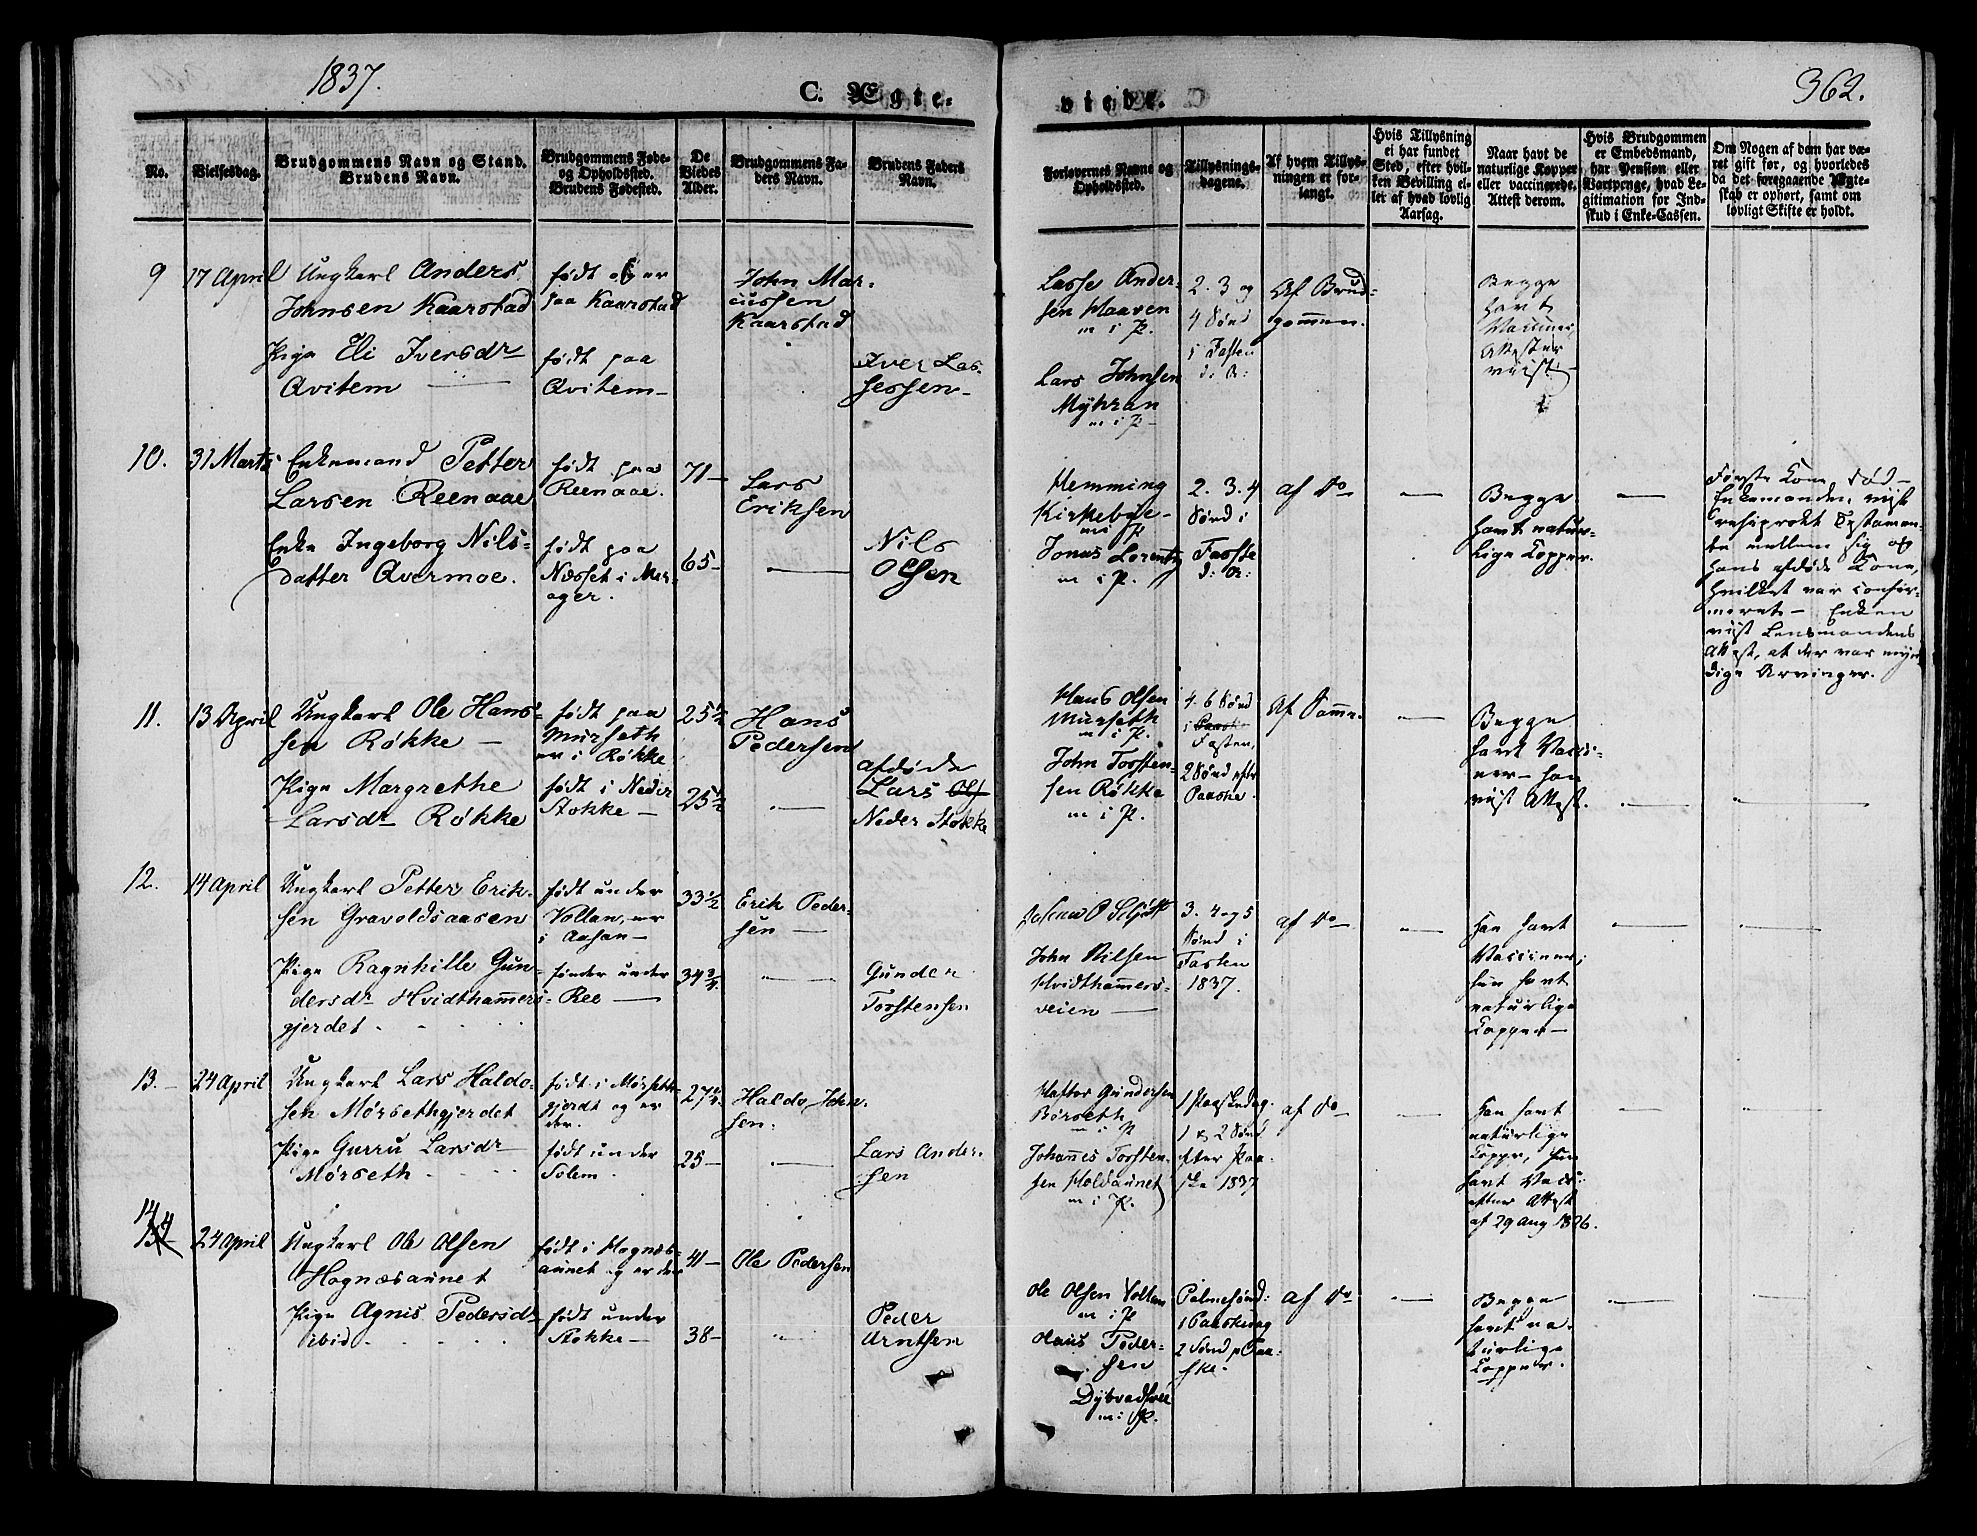 1837.
C. Ægte-
viede.
362.
No.
Vielsesdag.
Brudgommens Navn og Stand.
Brudens Navn.
Brudgommens Føde-
og Opholdssted.
Brudens Fødested.
De
Viedes
Alder.
Brudgommens Fa-
ders Navn.
Brudens Faders
Navn.
Forlovernes Navne og
Opholdssted.
Tillysnings-
dagene.
Af hvem Tillys-
ningen er for-
langt.
Hvis Tillysning
ei har fundet
Sted, efter hvil-
ken Bevilling el-
ler af hvad lovlig
Aarsag.
Naar havt de
naturlige Kopper
eller vaccinerede.
Attest derom.
Hvis Brudgommen
er Embedsmand,
har Pension eller
Vartpenge, hvad Le-
gitimation for Ind-
skud i Enke-Cassen.
Om Nogen af dem har væ-
ret gift før, og hvorledes
da det foregaaende Ægte-
skab er ophørt, samt om
lovligt Skifte er holdt.
9
17 April
Ungkarl Anders
Johnsen Kaarstad
Pige Eli Iversdr
Qvitem
født og er
paa Kaarstad
født paa
Qvitem
John Mar-
cussen
Kaarstad
Iver Las-
sessen
Lasse Ander-
sen Haaven
m i P.
Lars Johnsen
Myhran
m i P
2. 3 og
4 Sønd
i Fasten
d: A:
Af Brud-
gommen.
Begge
havt
Vaccine,
Attester
viist
10.
31 Marts
Enkemand Petter
Larsen Reenaae
Enke Ingeborg Nils-
datter Qvermoe.
født paa
Reenaae.
født paa
Næsset i Mar-
ager.
71
65
Lars
Eriksen
Nils
Olsen
Hemming
Kirkebye
m i P
Jonas Lorentz
m i P.
2. 3. 4
Sønd i
Faste
d: A:
af Do
Begge
havt natur-
lige Kopper.
Første Kone død -
Enkemanden viist
reciprokt Testamen-
te mellem sig og
hans afdøde Kone,
hvilket var confir-
meret - Enken
viist Lensmandens
Attest, at der var myn-
dige Arvinger.
11.
13 April
Ungkarl Ole Hans-
sen Røkke
Pige Margrethe
Larsdr Røkke
født paa
Mørseth
er i Røkke
født i Neder
Stokke
25½
25½
Hans
Pedersen
afdøde
Lars Ols
Neder Stokke
Hans Olsen
Mørseth
m i P.
John Torsten-
sen Røkke
m i P.
4. 6 Sønd
i Paaske
Fasten,
2 Sønd efter
Paaske.
Af Samme.
Begge
havt Vacci-
ner - han
viist Attest.
12.
14 April
Ungkarl Petter Erik-
sen Gravoldsaasen
Pige Ragnhille Gun-
dersdr Hvidthamers-
gjerdet
født under
Voltan, er
i Aasan
føder under
Ree
33½
34¾
Erik Peder-
sen
Gunder
Torstensen
Johan O Schjøtt
John Nilsen
Hvidthamers-
veien
3. 4 og 5
Sønd i
Fasten
1837.
af Do
Han havt
Vacciner;
hun havt
naturlige
Kopper
13.
24 April
Ungkarl Lars Haldo-
sen Mørsethgjerdet
Pige Gurru Larsdr
Mørseth
født i Mørseth-
gjerdt og er
der.
født under
Solem.
27¼
25
Haldo John-
sen.
Lars Ander-
sen
Halvor Gundersen
Børseth
m i P
Johannes Torsten-
sen Holdaunet
m i P.
1 Paaskedag
1 & 2 Sønd
efter Paa-
ske 1837
af Do
Han havt
naturlige
Kopper, hun
havt Vacc:
efter Attest
af 29 Aug 1826.
14
24 April
Ungkarl Ole Olsen
Hognæsaunet
Pige Agnis Pedersdr
ibid.
født i Hognæs-
aunet og er der
født under
Stokke
41
38
Ole Pedersen
Peder
Arntsen
Ole Olsen Voltan
m i P
Hans Peder-
sen
Dybvadsvee
m i P.
Palmesønd:
1 Paaskedag
2 Sønd p Paa-
ske.
af Do
Begge
havt na-
turlige
Kopper.